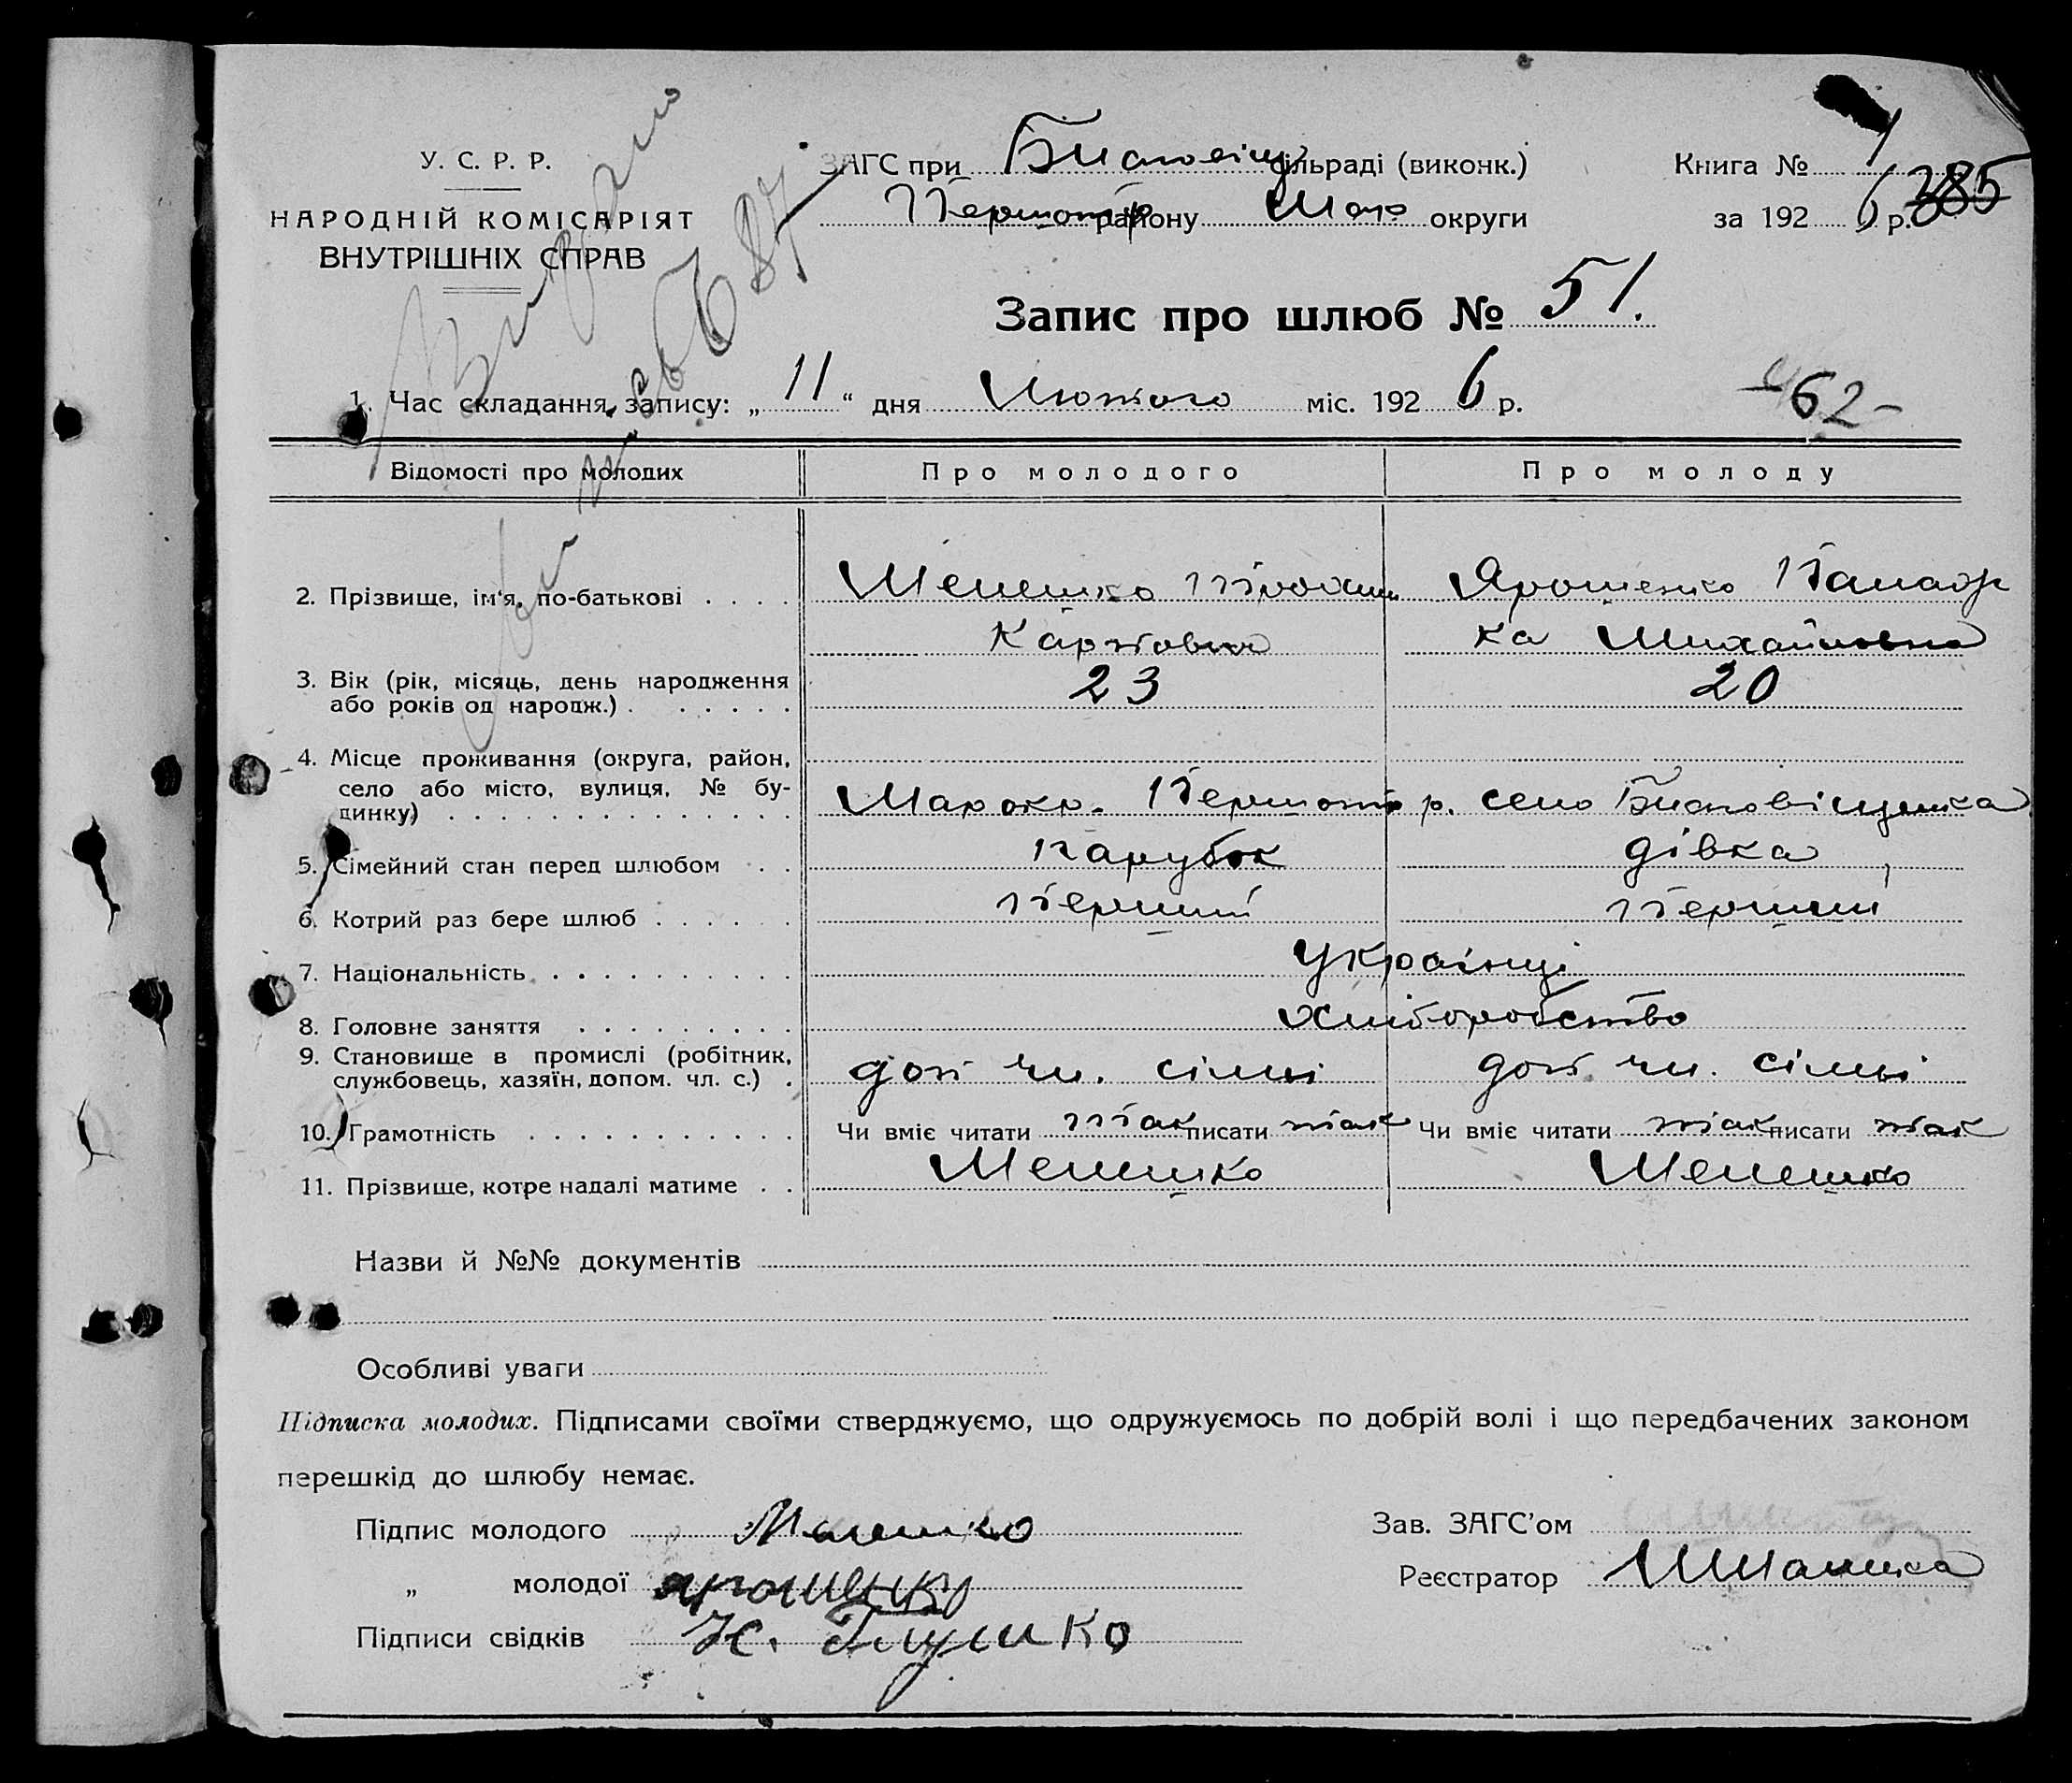 У. С. Р. Р.
НАРОДНІЙ КОМІСАРІЯТ
ВНУТРІШНІХ СПРАВ
ЗАГС при Благовіщ сільраді (виконк.)
району Мар округи
Книга № 1
за 192 6 р. 385
Запис про шлюб № 51.
1. Час складання запису: „ 11 “ дня Лютого міс. 192 6 р.
62-
Відомості про молодих Про молодого Про молоду
2. Прізвище, ім'я, по-батькові Мелешко Ярошенко
Карпович ка Михайловна
3. Вік (рік, місяць, день народження 23 20
або років од народж.)
4. Місце проживання (округа, район,
село або місто, вулиця, № бу- Мар окр. р. село Благовіщенка
динку)
5. Сімейний стан перед шлюбом парубок дівка
6. Котрий раз бере шлюб Перший Перший
7. Національність Українці
8. Головне заняття Хліборобство
9. Становище в промислі (робітник, доп чл. сімьї доп. чл. сімьї
службовець, хазяїн, допом. чл. с.)
10. Грамотність Чи вміє читати так писати так Чи вміє читати так писати так
11. Прізвище, котре надалі матиме Мелешко Мелешко
Назви й №№ документів
Особливі уваги
Підписка молодих. Підписами своїми стверджуємо, що одружуємось по добрій волі і що передбачених законом
перешкід до шлюбу немає.
Підпис молодого Мелешко
Зав. ЗАГС'ом
„ молодої Ярошенко
Реєстратор
Підписи свідків Глушко